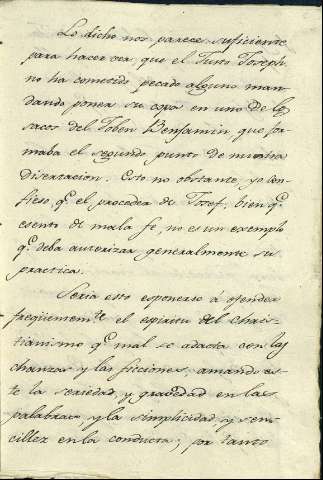 Lo dicho nos parece suficiente
para hacer ver que el Justo Joseph
no ha cometido pecado alguno man
dando poner su copa en uno de los
sacos del Joben Benjamin que for
maba el segundo punto de nuestra
disertacion. Esto no obstante, yo con
fieso, q.e el proceder de Josef, bien q.e
esento de mala fe, no es un exemplo
q.e deba autorizar generalmente su
practica.
Seria esto esponerse á ofender
freqüentem.te el espiritu del chris
tianismo q.e mal se adapta con las
chanzas y las ficciones; amando es
te la seriedad, y gravedad en las
palabras, y la simplicidad, y sen
cillez en la conducta; por tanto